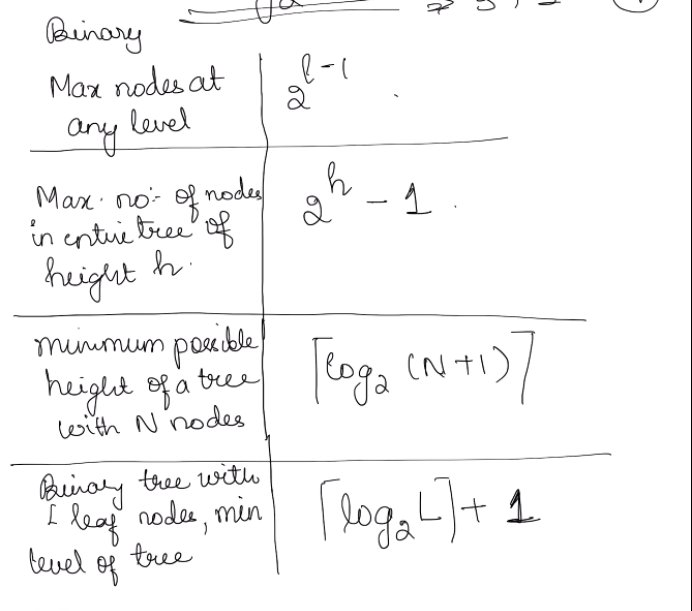 Binary
Max nodes at any level
2^{l-1}
Max. no:- of nodes
in entire tree of
height h.
2^h - 1.
minimum possible
height of a tree
with N nodes
⌈log₂ (N+1)⌉
Binary tree with
L leaf nodes, min
level of tree
⌈log₂L⌉ + 1